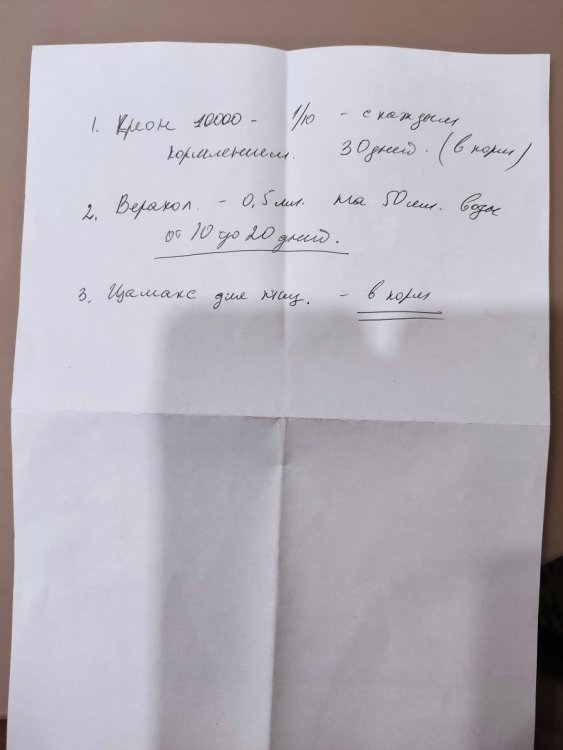 1. Креон 10000 - 1/10 - с каждым
кормлением. 30 дней. (в корм)
2. Веракол. - 0,5 мл. на 50 мл. воды
от 10 до 20 дней.
3. Цамакс для птиц. - в корм